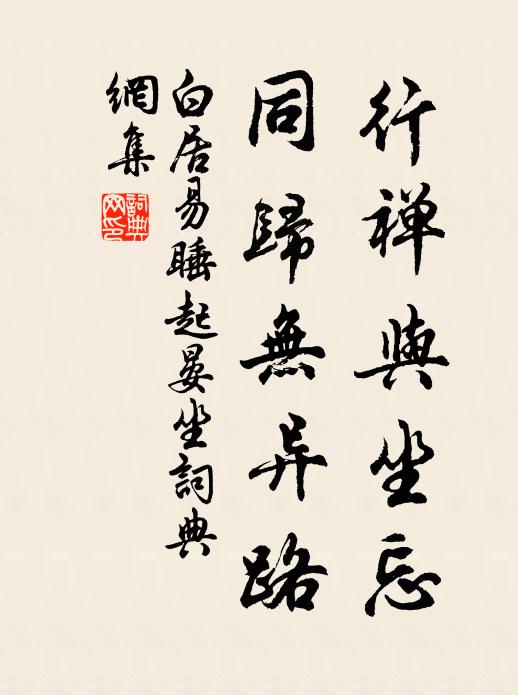 行禅與坐忘
同歸無异路
白居易睡起晏坐詞典
網集
詞典
网印